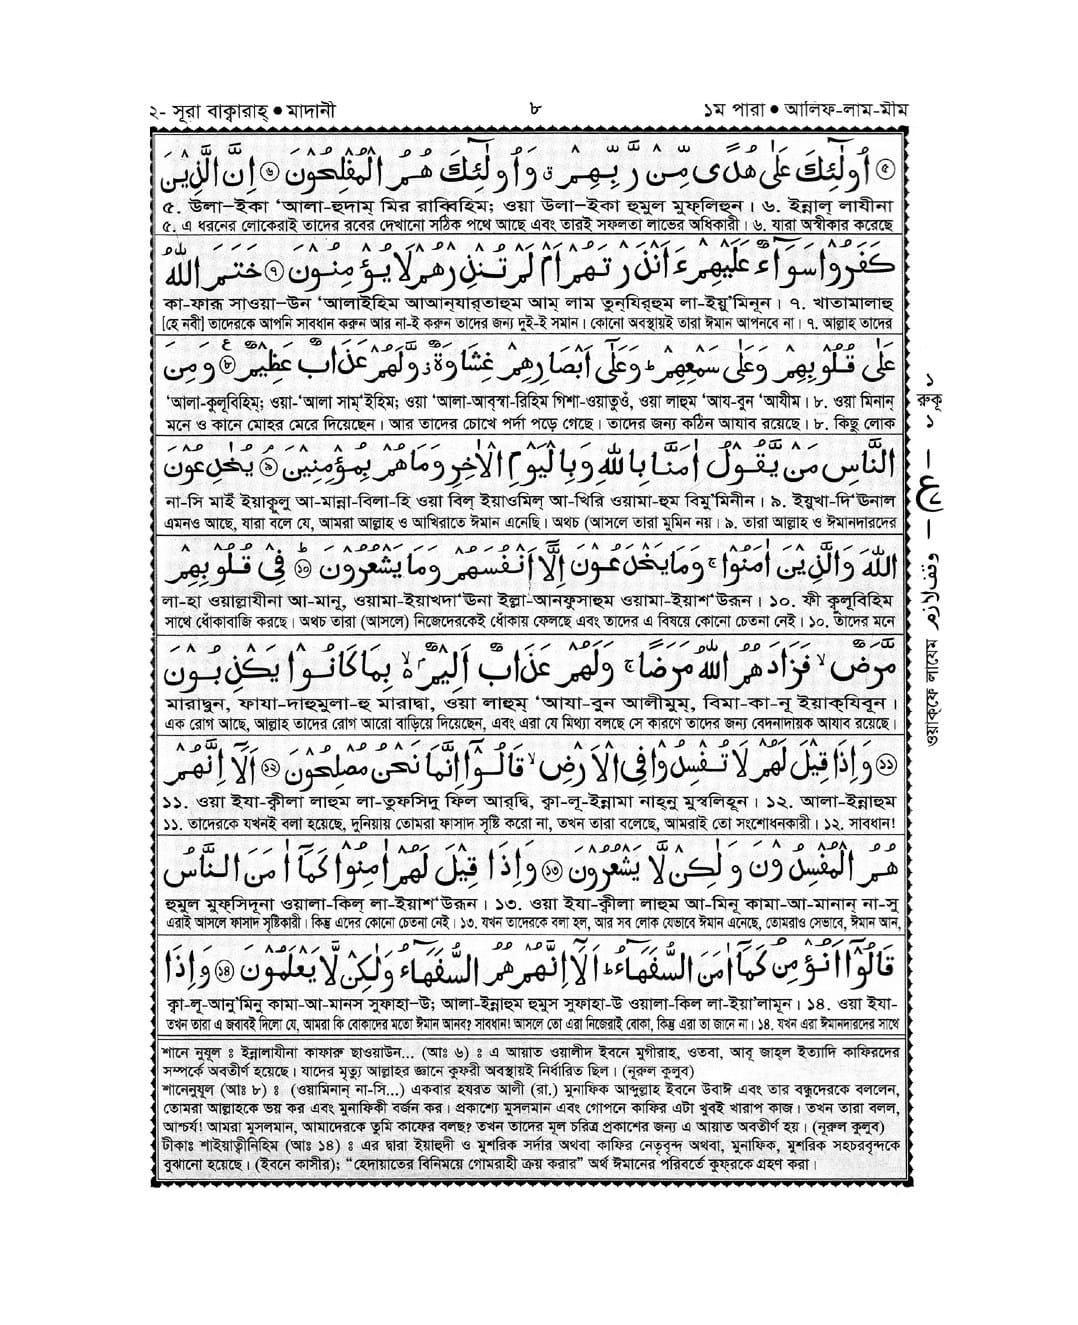 ২- সূরা বাক্বারাহ্ ● মাদানী ৮ ১ম পারা ● আলিফ-লাম-মীম
৫ اُولٰٓئِكَ عَلٰى هُدًى مِّنْ رَّبِّهِمْ ۤ وَاُولٰٓئِكَ هُمُ الْمُفْلِحُوْنَ ৬ اِنَّ الَّذِيْنَ
৫. উলা–ইকা 'আলা-হুদাম্ মির রাব্বিহিম; ওয়া উলা–ইকা হুমুল মুফ্লিহুন। ৬. ইন্নাল্ লাযীনা
৫. এ ধরনের লোকেরাই তাদের রবের দেখানো সঠিক পথে আছে এবং তারাই সফলতা লাভের অধিকারী। ৬. যারা অস্বীকার করেছে
كَفَرُوْا سَوَآءٌ عَلَيْهِمْ ءَاَنْذَرْتَهُمْ اَمْ لَمْ تُنْذِرْهُمْ لَا يُؤْمِنُوْنَ ৭ خَتَمَ اللّٰهُ
কা-ফারূ সাওয়া–উন 'আলাইহিম আআন্যার্তাহুম আম্ লাম তুন্যির্হুম লা-ইয়ু'মিনূন। ৭. খাতামালাহু
[হে নবী] তাদেরকে আপনি সাবধান করুন আর না-ই করুন তাদের জন্য দুই-ই সমান। কোনো অবস্থায়ই তারা ঈমান আপনবে না। ৭. আল্লাহ তাদের
عَلٰى قُلُوْبِهِمْ وَعَلٰى سَمْعِهِمْ ؕ وَعَلٰٓى اَبْصَارِهِمْ غِشَاوَةٌ ز وَّلَهُمْ عَذَابٌ عَظِيْمٌ ৮ وَمِنَ
'আলা-কুলূবিহিম্; ওয়া-'আলা সাম্'ইহিম; ওয়া 'আলা-আব্স্বা-রিহিম গিশা-ওয়াতুওঁ, ওয়া লাহুম 'আয-বুন 'আযীম। ৮. ওয়া মিনান্
মনে ও কানে মোহর মেরে দিয়েছেন। আর তাদের চোখে পর্দা পড়ে গেছে। তাদের জন্য কঠিন আযাব রয়েছে। ৮. কিছু লোক
النَّاسِ مَنْ يَّقُوْلُ اٰمَنَّا بِاللّٰهِ وَبِالْيَوْمِ الْاٰخِرِ وَمَا هُمْ بِمُؤْمِنِيْنَ ৯ يُخٰدِعُوْنَ
না-সি মাইঁ ইয়াকূলু আ-মান্না-বিলা-হি ওয়া বিল্ ইয়াওমিল্ আ-খিরি ওয়ামা-হুম বিমু'মিনীন। ৯. ইয়ুখা-দি'উনাল
এমনও আছে, যারা বলে যে, আমরা আল্লাহ ও আখিরাতে ঈমান এনেছি। অথচ (আসলে তারা মুমিন নয়। ৯. তারা আল্লাহ ও ঈমানদারদের
اللّٰهَ وَالَّذِيْنَ اٰمَنُوْا ۚ وَمَا يَخْدَعُوْنَ اِلَّآ اَنْفُسَهُمْ وَمَا يَشْعُرُوْنَ ؕ ১০ فِىْ قُلُوْبِهِمْ
লা-হা ওয়াল্লাযীনা আ-মানূ, ওয়ামা-ইয়াখদা'ঊনা ইল্লা-আনফুসাহুম ওয়ামা-ইয়াশ'উরূন। ১০. ফী কুলূবিহিম
সাথে ধোঁকাবাজি করছে। অথচ তারা (আসলে) নিজেদেরকেই ধোঁকায় ফেলছে এবং তাদের এ বিষয়ে কোনো চেতনা নেই। ১০. তাদের মনে
مَّرَضٌ ۙ فَزَادَهُمُ اللّٰهُ مَرَضًا ۚ وَلَهُمْ عَذَابٌ اَلِيْمٌۢ ۙ بِمَا كَانُوْا يَكْذِبُوْنَ
মারাদ্বুন, ফাযা-দাহুমুলা-হু মারাদ্বা, ওয়া লাহুম্ 'আযা-বুন আলীমুম্, বিমা-কা-নূ ইয়াক্যিবূন।
এক রোগ আছে, আল্লাহ তাদের রোগ আরো বাড়িয়ে দিয়েছেন, এবং এরা যে মিথ্যা বলছে সে কারণে তাদের জন্য বেদনাদায়ক আযাব রয়েছে।
১১ وَاِذَا قِيْلَ لَهُمْ لَا تُفْسِدُوْا فِى الْاَرْضِ ۙ قَالُوْٓا اِنَّمَا نَحْنُ مُصْلِحُوْنَ ১২ اَلَآ اِنَّهُمْ
১১. ওয়া ইযা-ক্বীলা লাহুম লা-তুফসিদু ফিল আর্দ্বি, ক্বা-লূ-ইন্নামা নাহ্নু মুস্বলিহূন। ১২. আলা-ইন্নাহুম
১১. তাদেরকে যখনই বলা হয়েছে, দুনিয়ায় তোমরা ফাসাদ সৃষ্টি করো না, তখন তারা বলেছে, আমরাই তো সংশোধনকারী। ১২. সাবধান!
هُمُ الْمُفْسِدُوْنَ وَلٰكِنْ لَّا يَشْعُرُوْنَ ১৩ وَاِذَا قِيْلَ لَهُمْ اٰمِنُوْا كَمَآ اٰمَنَ النَّاسُ
হুমুল মুফ্সিদূনা ওয়ালা-কিল্ লা-ইয়াশ'উরূন। ১৩. ওয়া ইযা-ক্বীলা লাহুম আ-মিনূ কামা-আ-মানান্ না-সু
এরাই আসলে ফাসাদ সৃষ্টিকারী। কিন্তু এদের কোনো চেতনা নেই। ১৩. যখন তাদেরকে বলা হল, আর সব লোক যেভাবে ঈমান এনেছে, তোমরাও সেভাবে, ঈমান আন,
قَالُوْٓا اَنُؤْمِنُ كَمَآ اٰمَنَ السُّفَهَآءُ ؕ اَلَآ اِنَّهُمْ هُمُ السُّفَهَآءُ وَلٰكِنْ لَّا يَعْلَمُوْنَ ১৪ وَاِذَا
ক্বা-লূ-আনু'মিনু কামা-আ-মানস সুফাহা–উ; আলা-ইন্নাহুম হুমুস সুফাহা-উ ওয়ালা-কিল লা-ইয়া'লামূন। ১৪. ওয়া ইযা-
তখন তারা এ জবাবই দিলো যে, আমরা কি বোকাদের মতো ঈমান আনব? সাবধান! আসলে তো এরা নিজেরাই বোকা, কিন্তু এরা তা জানে না। ১৪. যখন এরা ঈমানদারদের সাথে
শানে নুযূল ঃ ইন্নালাযীনা কাফারু ছাওয়াউন... (আঃ ৬) ঃ এ আয়াত ওয়ালীদ ইবনে মুগীরাহ, ওতবা, আবূ জাহ্ল ইত্যাদি কাফিরদের
সম্পর্কে অবতীর্ণ হয়েছে। যাদের মৃত্যু আল্লাহর জ্ঞানে কুফরী অবস্থায়ই নির্ধারিত ছিল। (নূরুল কুলুব)
শানেনুযূল (আঃ ৮) ঃ (ওয়ামিনান্ না-সি...) একবার হযরত আলী (রা.) মুনাফিক আব্দুল্লাহ ইবনে উবাঈ এবং তার বন্ধুদেরকে বললেন,
তোমরা আল্লাহকে ভয় কর এবং মুনাফিকী বর্জন কর। প্রকাশ্যে মুসলমান এবং গোপনে কাফির এটা খুবই খারাপ কাজ। তখন তারা বলল,
আশ্চর্য! আমরা মুসলমান, আমাদেরকে তুমি কাফের বলছ? তখন তাদের মূল চরিত্র প্রকাশের জন্য এ আয়াত অবতীর্ণ হয়। (নূরুল কুলুব)
টীকাঃ শাইয়াত্বীনিহিম (আঃ ১৪) ঃ এর দ্বারা ইয়াহুদী ও মুশরিক সর্দার অথবা কাফির নেতৃবৃন্দ অথবা, মুনাফিক, মুশরিক সহচরবৃন্দকে
বুঝানো হয়েছে। (ইবনে কাসীর); "হেদায়াতের বিনিময়ে গোমরাহী ক্রয় করার" অর্থ ঈমানের পরিবর্তে কুফ্রকে গ্রহণ করা।
১
রুকূ
১
ع
وقف لازم
ওয়াক্ফে লাযেম